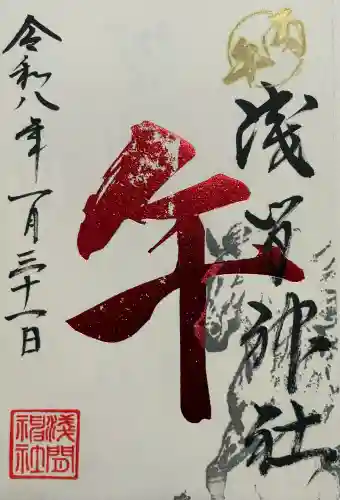 丙
午
浅间神社
午
令和八年一月三十一日
浅間
神社